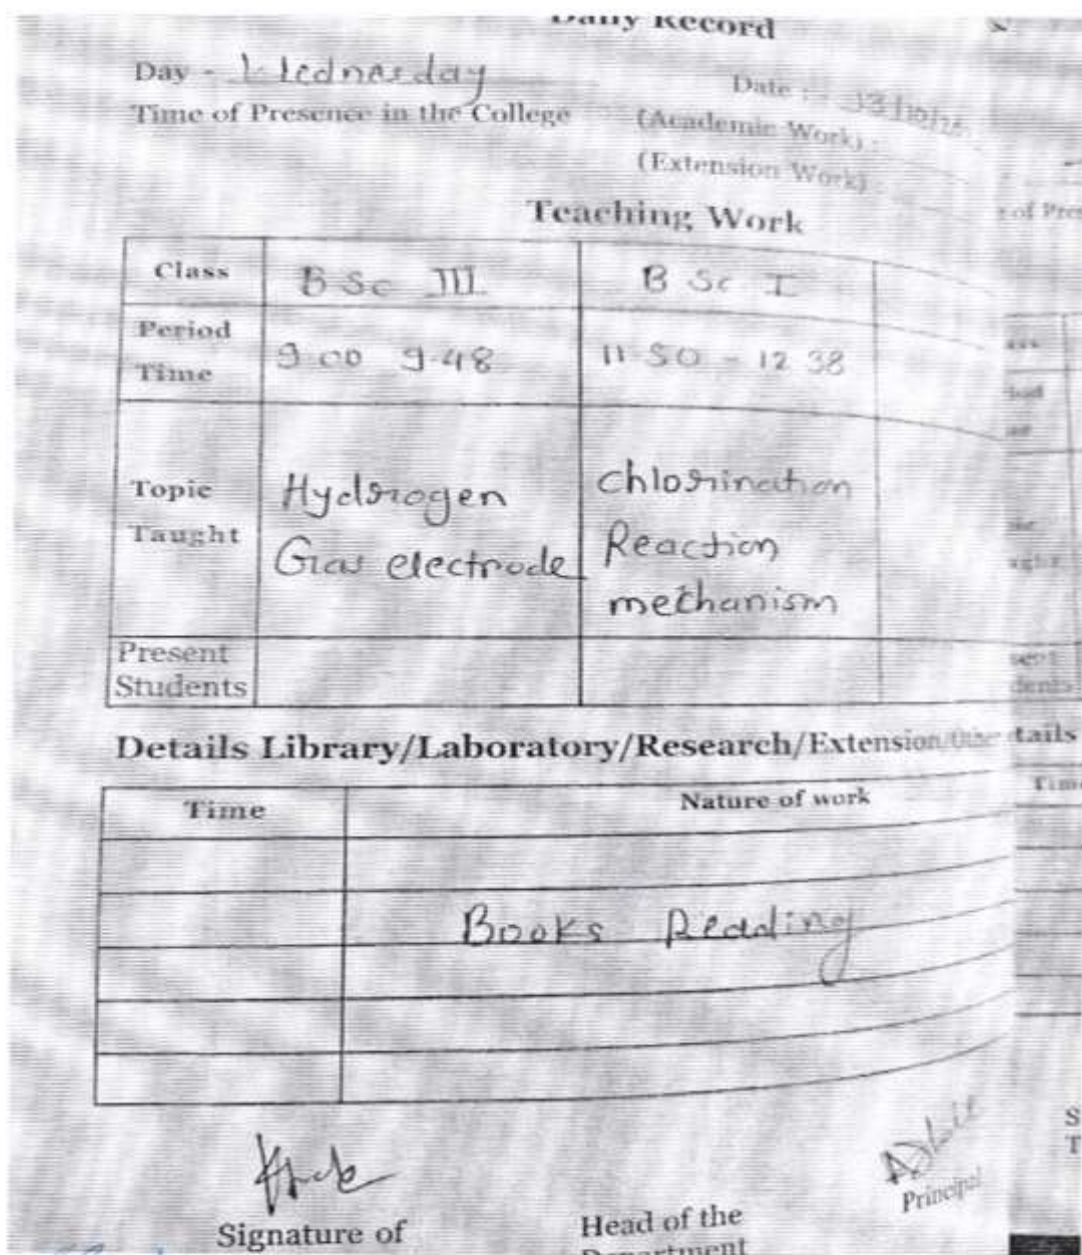 Daily Record
Day - Wednesday
Date :-
Time of Presence in the College
(Academic Work) :
(Extension Work) :
Teaching Work
Class B Sc III B Sc I
Period Time 9.00 9.48 11.50 - 12 38
Topic Taught Hydrogen Gas electrode Chlorination Reaction mechanism
Present Students
Details Library/Laboratory/Research/Extension/Other
Time Nature of work
Books Reading
Principal
Signature of Head of the
Department